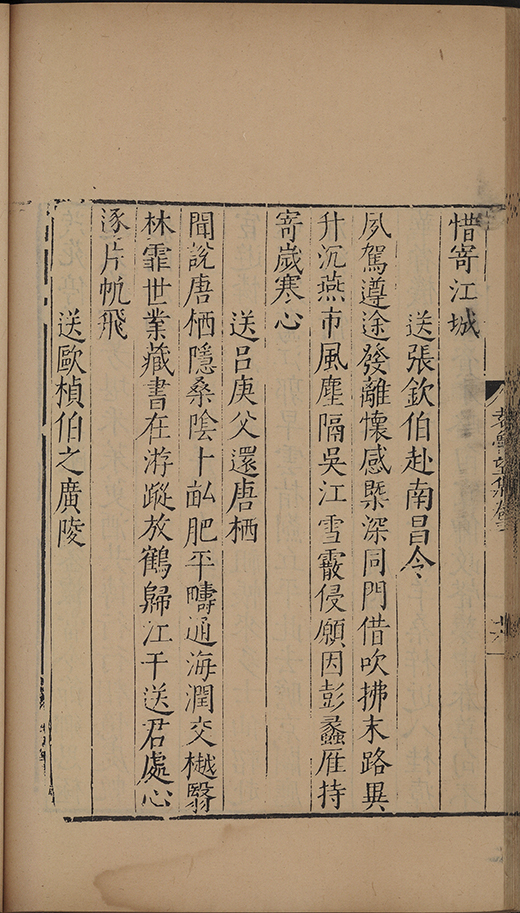 惜寄江城
送張欽伯赴南昌令
夙駕遵途發離懷感槩深同門借吹拂末路異
升沉燕市風塵隔吳江雪霰侵願因彭蠡雁持
寄歲寒心
送呂庚父還唐栖
聞說唐栖隱桑陰十畝肥平疇通海潤交樾翳
林霏世業藏書在游蹤放鶴歸江干送君處心
逐片帆飛
送歐楨伯之廣陵